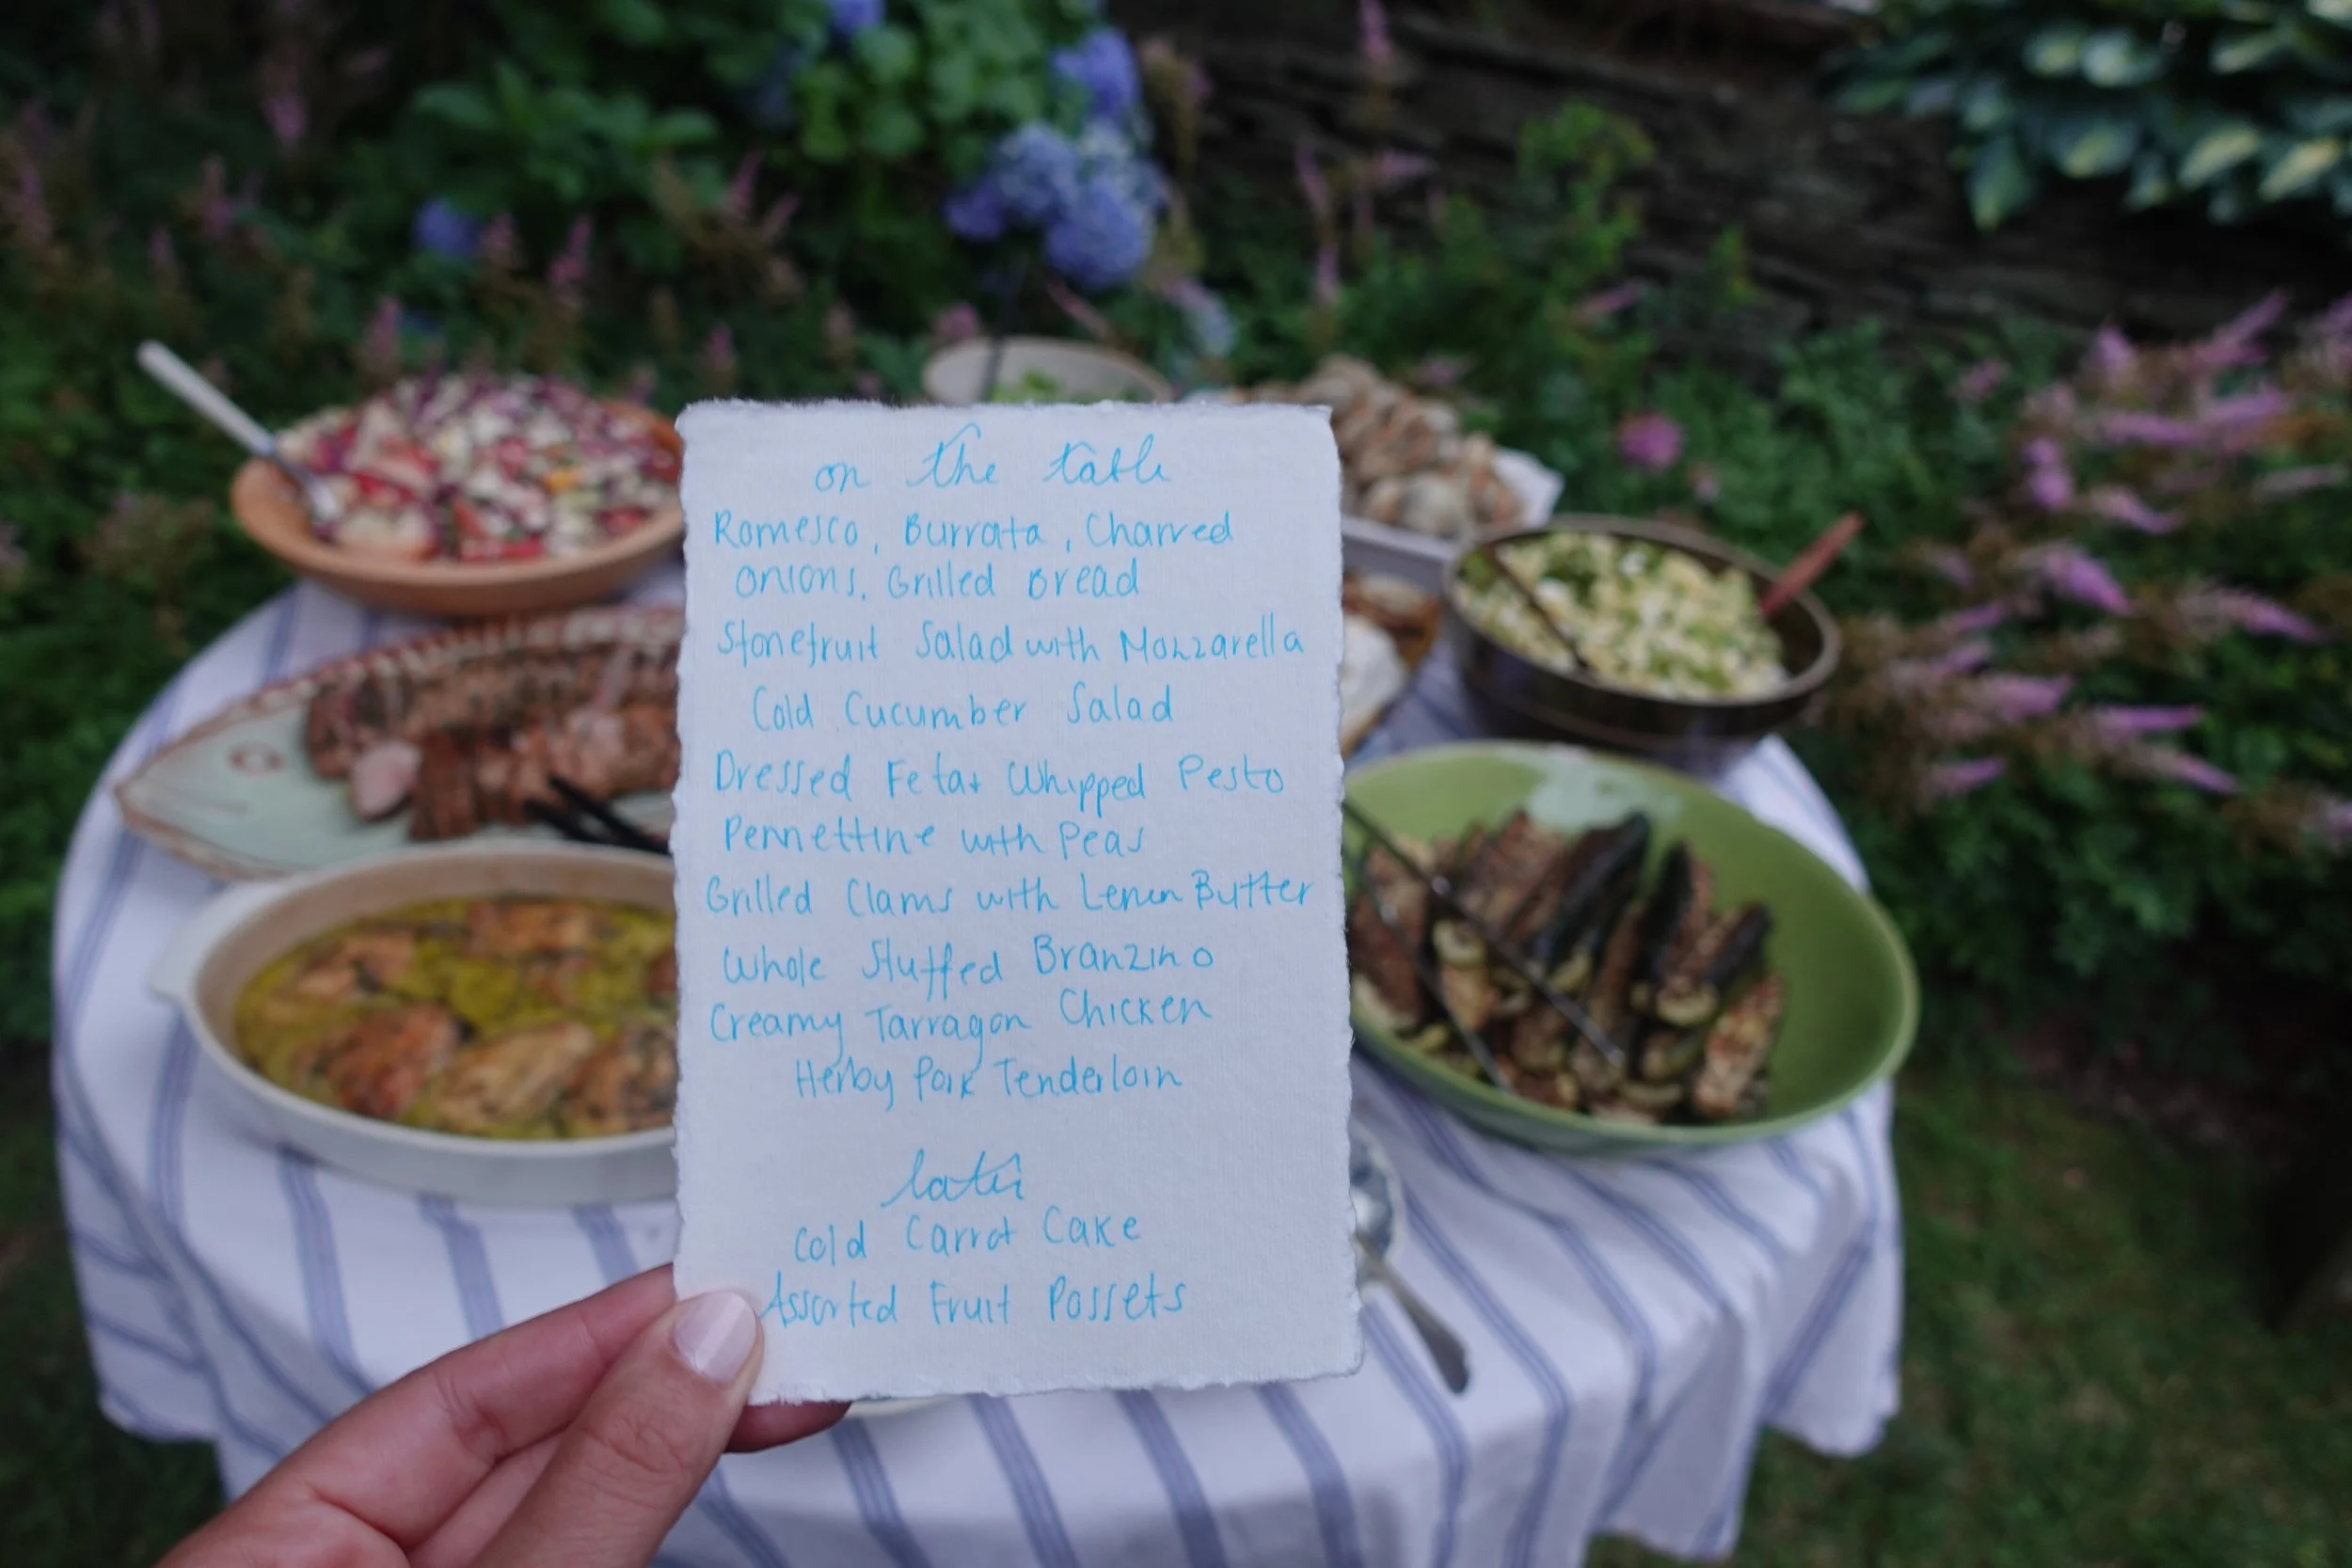 on the table
Romesco, Burrata, Charred
onions, Grilled Bread
Stonefruit Salad with Mozzarella
Cold Cucumber Salad
Dressed Feta + Whipped Pesto
Pennettine with Peas
Grilled Clams with Lemon Butter
Whole Stuffed Branzino
Creamy Tarragon Chicken
Herby Pork Tenderloin
later
Cold Carrot Cake
Assorted Fruit Possets